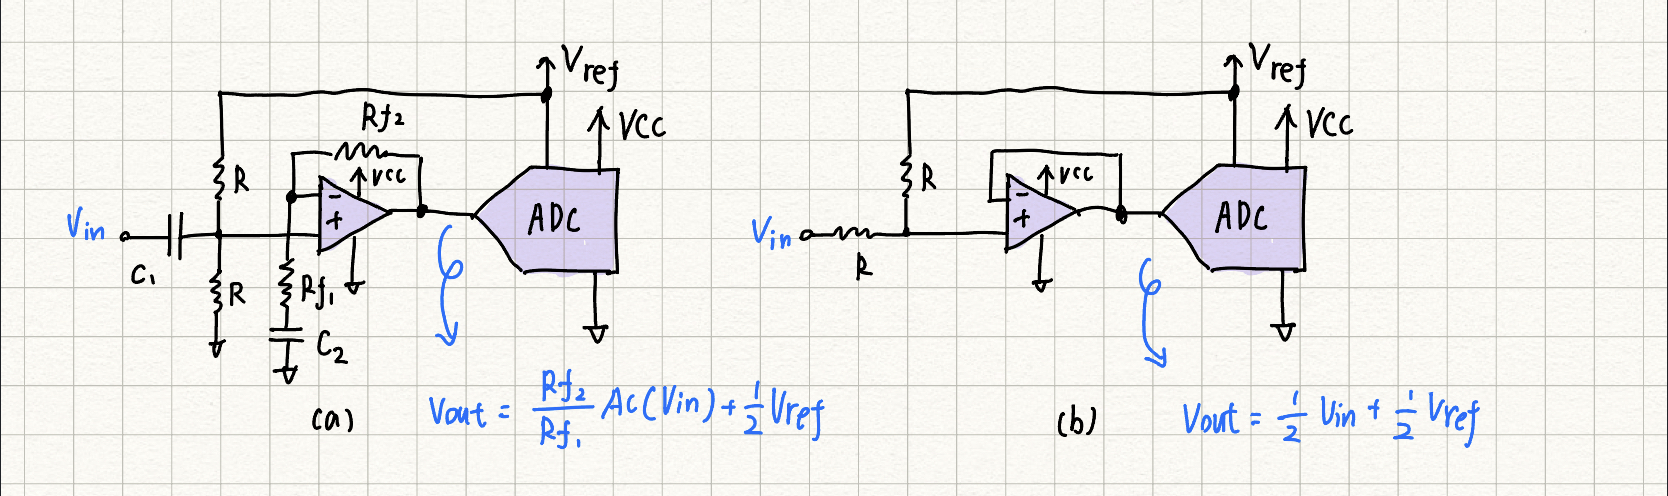 Vref
Rf2
VCC
R
VCC
Vin
ADC
C1
R
Rf1
C2
(a)
Vout = Rf2/Rf1 Ac(Vin) + 1/2 Vref
Vref
VCC
R
VCC
Vin
ADC
R
(b)
Vout = 1/2 Vin + 1/2 Vref